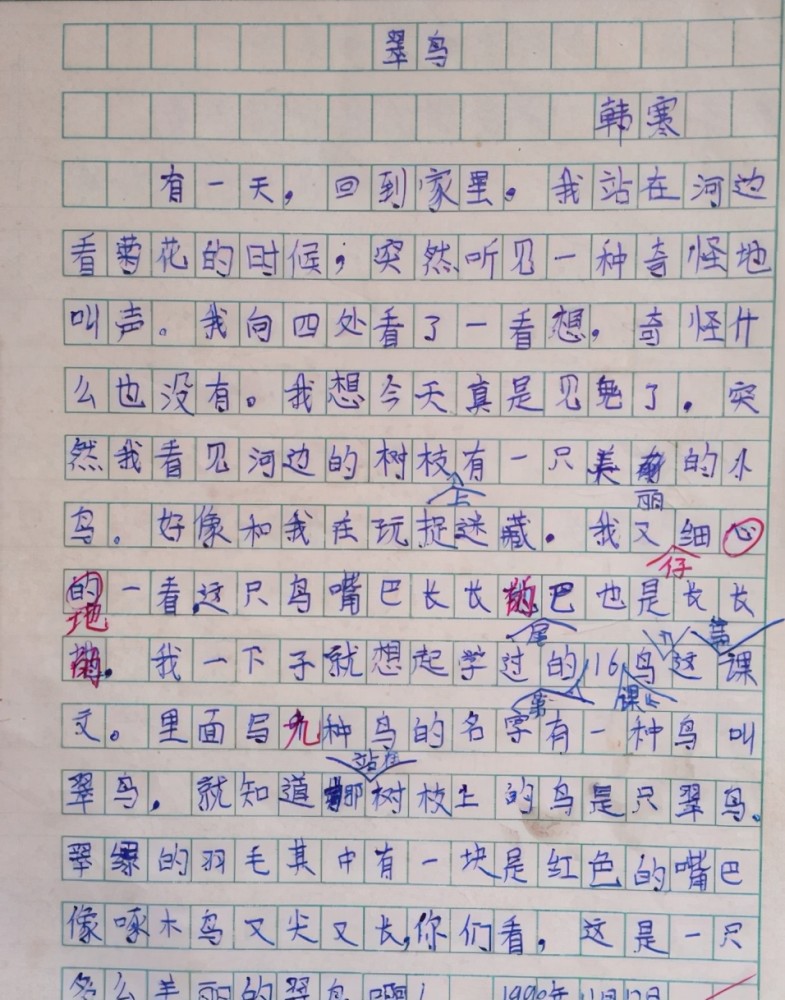 翠鸟
韩寒
有一天，回到家里。我站在河边
看菊花的时候，突然听见一种奇怪地
叫声。我向四处看了一看想，奇怪什
么也没有。我想今天真是见鬼了．突
然我看见河边的树枝上有一只美丽的小
鸟．好像和我在玩捉迷藏．我又仔细
地一看这只鸟嘴巴长长尾巴也是长长
我一下子就想起学过的第16课鸟这课
文。里面写九种鸟的名字有一种鸟叫
翠鸟，就知道站在那树枝上的鸟是只翠鸟、
翠绿的羽毛其中有一块是红色的嘴巴
像啄木鸟又尖又长,你们看，这是一只
多么美丽的翠鸟啊！